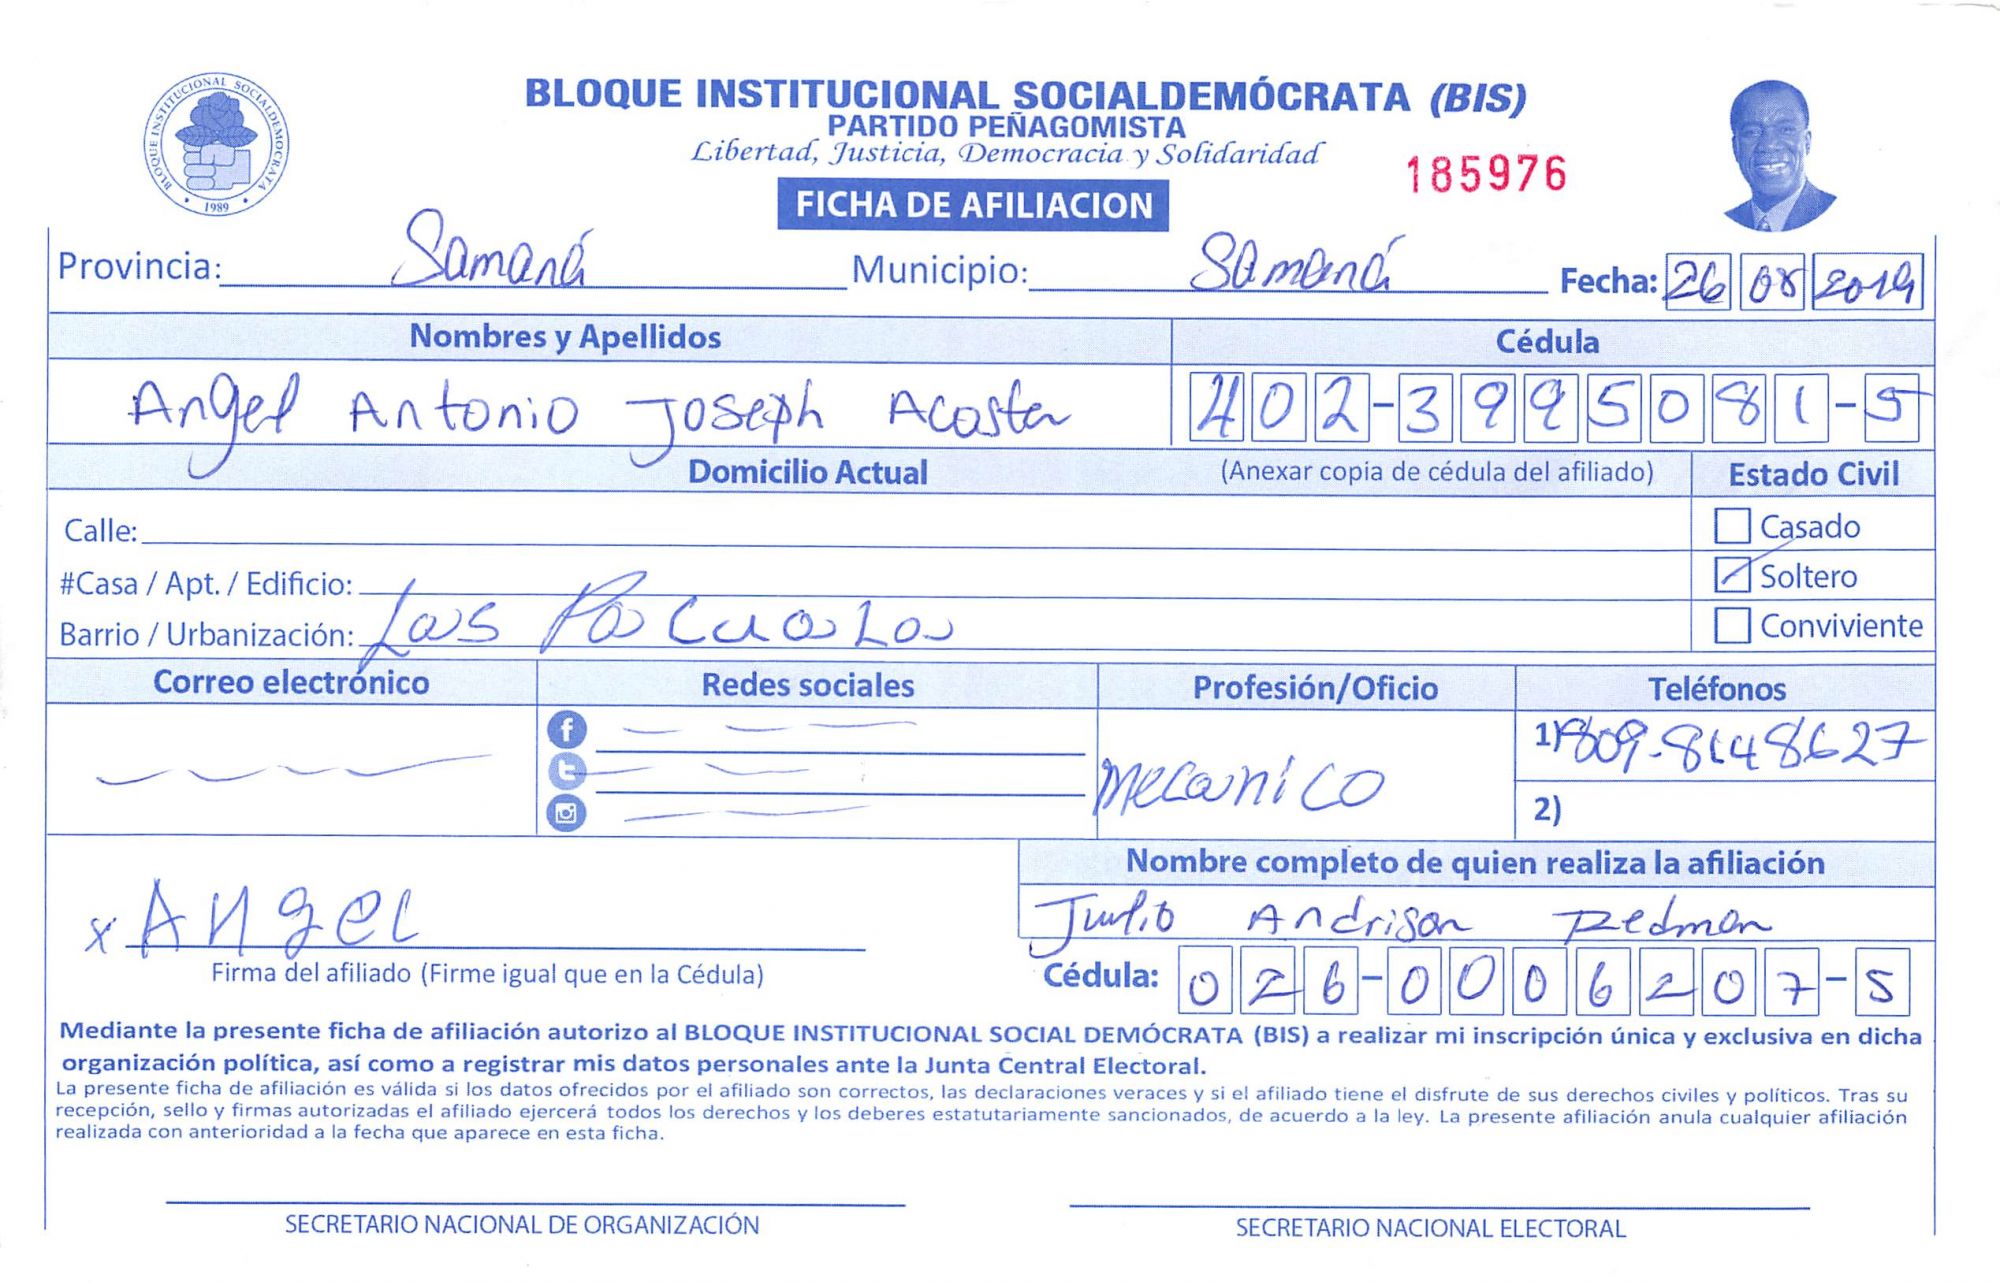 BLOQUE INSTITUCIONAL SOCIALDEMOCRATA
1989
BLOQUE INSTITUCIONAL SOCIALDEMÓCRATA (BIS)
PARTIDO PEÑAGOMISTA
Libertad, Justicia, Democracia y Solidaridad
185976
FICHA DE AFILIACION
Provincia: Samaná Municipio: Samaná Fecha: 26 08 2019
Nombres y Apellidos Cédula
Angel Antonio Joseph Acosta 402-3995081-5
Domicilio Actual (Anexar copia de cédula del afiliado) Estado Civil
Calle: Casado
#Casa / Apt. / Edificio: Soltero
Barrio / Urbanización: Las Pascuala Conviviente
Correo electrónico Redes sociales Profesión/Oficio Teléfonos
1) 809-8148627
Mecanico
2)
Nombre completo de quien realiza la afiliación
Julio Andrison Redman
x Angel
Firma del afiliado (Firme igual que en la Cédula) Cédula: 026-0006207-5
Mediante la presente ficha de afiliación autorizo al BLOQUE INSTITUCIONAL SOCIAL DEMÓCRATA (BIS) a realizar mi inscripción única y exclusiva en dicha
organización política, así como a registrar mis datos personales ante la Junta Central Electoral.
La presente ficha de afiliación es válida si los datos ofrecidos por el afiliado son correctos, las declaraciones veraces y si el afiliado tiene el disfrute de sus derechos civiles y políticos. Tras su
recepción, sello y firmas autorizadas el afiliado ejercerá todos los derechos y los deberes estatutariamente sancionados, de acuerdo a la ley. La presente afiliación anula cualquier afiliación
realizada con anterioridad a la fecha que aparece en esta ficha.
SECRETARIO NACIONAL DE ORGANIZACIÓN SECRETARIO NACIONAL ELECTORAL